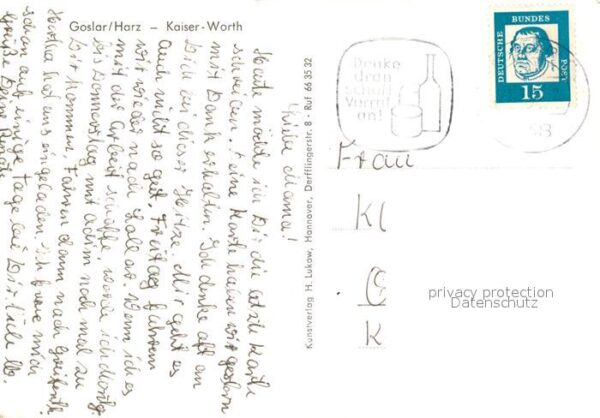 Goslar/Harz – Kaiser-Worth
Liebe Mama!
Heute möchte ich Dir die letzte Karte
schreiben. Deine Karte haben wir gestern
mit Dank erhalten. Ich denke oft an
Dich bei dieser Hitze. Mir geht es
auch nicht so gut. Freitag fahren
wir wieder nach Hall ab. Wenn ich es
mit der Arbeit schaffe, werde ich
Donnerstag mit noch mal zu
Dir kommen, fahren dann nach
hat uns eingeladen. Ich freue mich
schon auf einige Tage bei Dir. Sei lb.
Grüße Deine
Kunstverlag H. Lukow, Hannover, Derfflingerstr. 8 · Ruf 66 35 32
Denke
dran
schaff
Vorrat
an!
DEUTSCHE
BUNDES
POST
15
Frau
Kl
G
K
privacy protection
Datenschutz